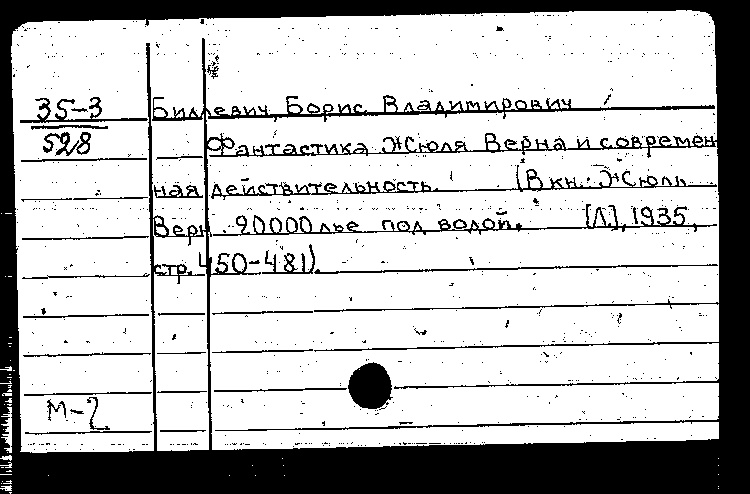 35-3
528
Билевич, Борис Владимирович
Фантастика Жюля Верна и современ
ная действительность. (В кн.: Жюль
Верн. 20000 лье под водой. [Л.], 1935,
стр. 450-481).
М-2